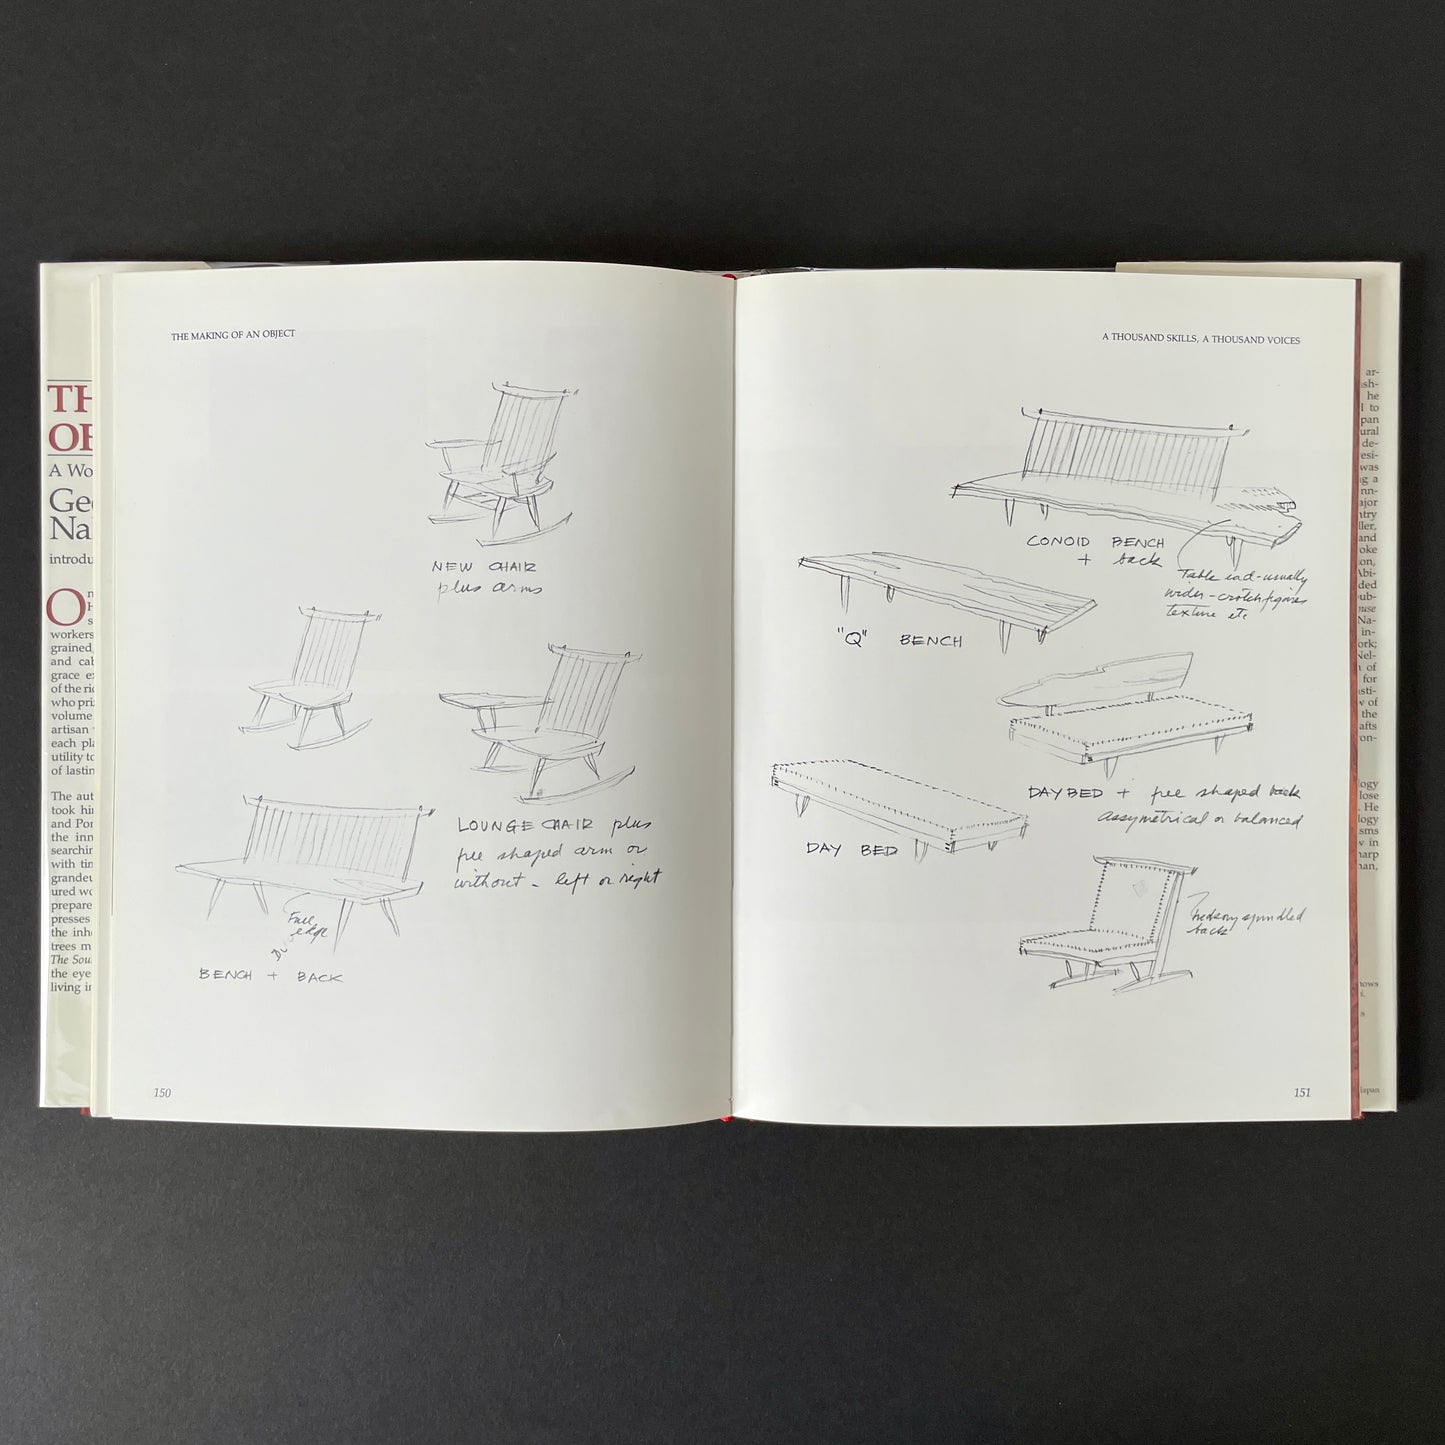 TH
OB
A Wo
Geo
Na
introdu
On
H
s
workers
grained
and cab
grace ex
of the ric
who priz
volume
artisan
each pla
utility to
of lastin
The aut
took hi
and Por
the inn
searchin
with tim
grandeu
ured wo
prepare
presses
the inhe
trees m
The Sou
the eye
living in
THE MAKING OF AN OBJECT
NEW CHAIR
plus arms
LOUNGE CHAIR plus
free shaped arm or
without - left or right
Free
edge
BENCH + BACK
150
A THOUSAND SKILLS, A THOUSAND VOICES
CONOID BENCH
+ back
Table end-usually
wider-crotch figures
texture etc
"Q" BENCH
DAY BED + free shaped back
assymetrical or balanced
DAY BED
spindled
back
151
ar-
ash-
he
l to
pan
ural
de-
esi-
was
g a
nn-
ajor
ntry
ller,
and
oke
ion,
Abi-
ded
ub-
ouse
Na-
in-
ork;
Nel-
n of
for
sti-
w of
the
afts
on-
ogy
lose
He
logy
isms
w in
harp
nan,
nows
i.
s
Japan